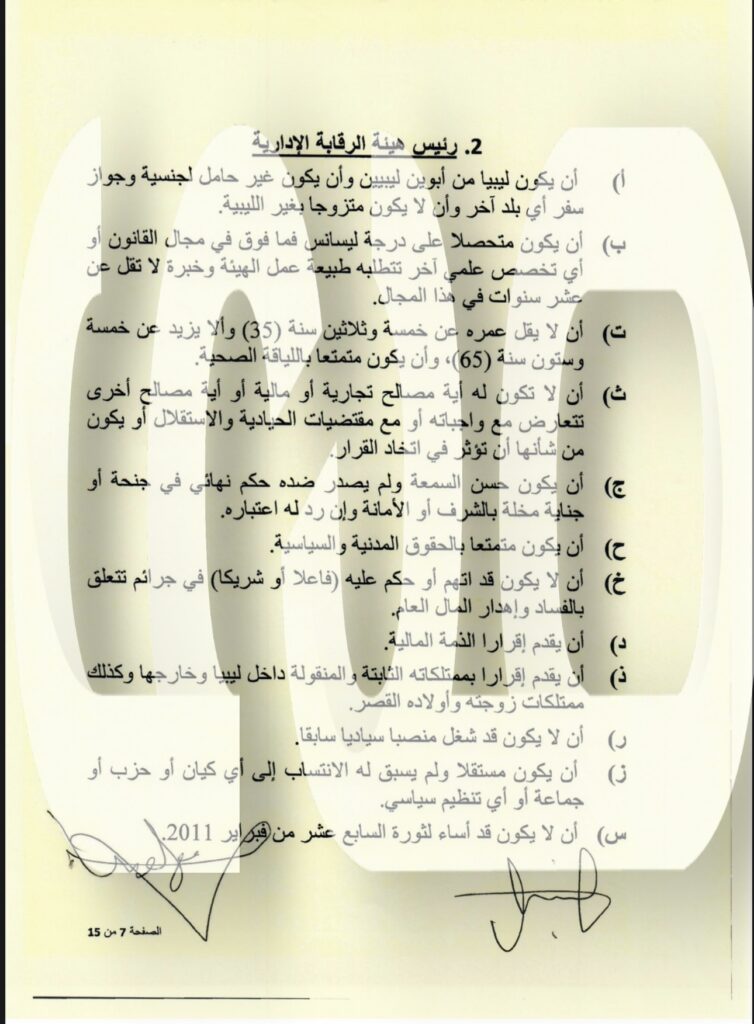 2. رئيس هيئة الرقابة الإدارية
أ) أن يكون ليبيا من أبوين ليبيين وأن يكون غير حامل لجنسية وجواز
سفر أي بلد آخر وأن لا يكون متزوجا بغير الليبية.
ب) أن يكون متحصلا على درجة ليسانس فما فوق في مجال القانون أو
أي تخصص علمي آخر تتطلبه طبيعة عمل الهيئة وخبرة لا تقل عن
عشر سنوات في هذا المجال.
ت) أن لا يقل عمره عن خمسة وثلاثين سنة (35) وألا يزيد عن خمسة
وستون سنة (65)، وأن يكون متمتعا باللياقة الصحية.
ث) أن لا تكون له أية مصالح تجارية أو مالية أو أية مصالح أخرى
تتعارض مع واجباته أو مع مقتضيات الحيادية والاستقلال أو يكون
من شأنها أن تؤثر في اتخاد القرار.
ج) أن يكون حسن السمعة ولم يصدر ضده حكم نهائي في جنحة أو
جناية مخلة بالشرف أو الأمانة وإن رد له اعتباره.
ح) أن يكون متمتعا بالحقوق المدنية والسياسية.
خ) أن لا يكون قد اتهم أو حكم عليه (فاعلا أو شريكا) في جرائم تتعلق
بالفساد وإهدار المال العام.
د) أن يقدم إقرارا الذمة المالية.
ذ) أن يقدم إقرارا بممتلكاته الثابتة والمنقولة داخل ليبيا وخارجها وكذلك
ممتلكات زوجته وأولاده القصر.
ر) أن لا يكون قد شغل منصبا سياديا سابقا.
ز) أن يكون مستقلا ولم يسبق له الانتساب إلى أي كيان أو حزب أو
جماعة أو أي تنظيم سياسي.
س) أن لا يكون قد أساء لثورة السابع عشر من فبراير 2011.
الصفحة 7 من 15